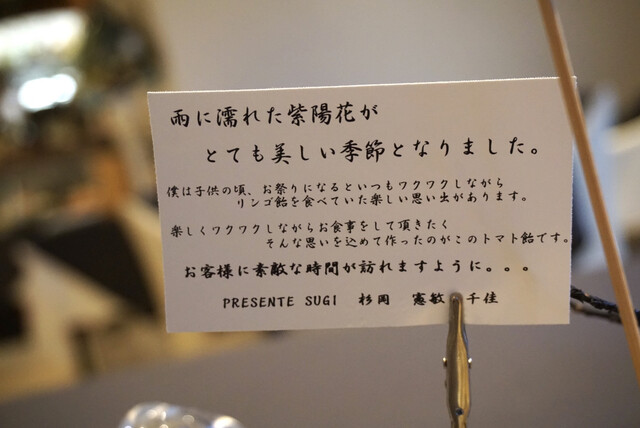 雨に濡れた紫陽花が
とても美しい季節となりました。
僕は子供の頃、お祭りになるといつもワクワクしながら
リンゴ飴を食べていた楽しい思い出があります。
楽しくワクワクしながらお食事をして頂きたく
そんな思いを込めて作ったのがこのトマト飴です。
お客様に素敵な時間が訪れますように。。。
PRESENTE SUGI 杉岡 憲敏 千佳